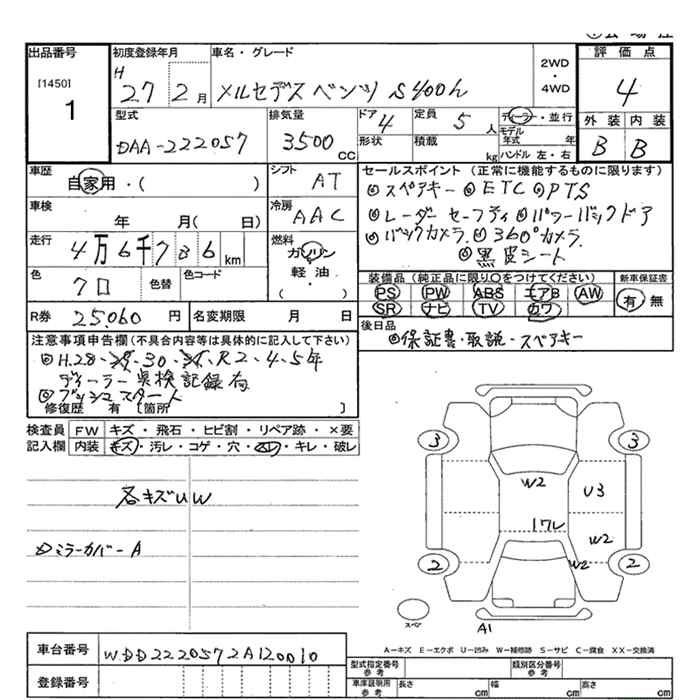 出品番号 初度登録年月 車名・グレード 評価点
[1450] H 27 2月 メルセデスベンツ S400h 2WD・4WD 4
1 型式 排気量 ドア 4 定員 5人 ディーラー・並行 外装 内装
DAA-222057 3500CC 形状 積載 kg モデル年式 年 B B
ハンドル 左・右
車歴 自家用・( ) シフト AT セールスポイント (正常に機能するものに限ります)
◎スペアキー ◎ETC ◎PTS
車検 年 月( 日) 冷房 AAC ◎レーダーセーフティ ◎パワーバックドア
走行 4万6千786km 燃料 ガソリン ◎バックカメラ. ◎360°カメラ.
軽油・( ) ◎黒皮シート
色 クロ 色替 色コード 装備品 (純正品に限り○をつけてください) 新車保証書
PS PW ABS エアB AW 有・無
SR ナビ TV カワ
R券 25.060円 名変期限 月 日 後日品
◎保証書・取説・スペアキー
注意事項申告欄(不具合内容等は具体的に記入して下さい)
◎H.28・29・30・31・R2.4.5年
ディーラー点検記録有
◎プッシュスタート
修復歴 有 [箇所 ]
検査員 FW キズ・飛石・ヒビ割・リペア跡・×要
記入欄 内装 キズ・汚レ・コゲ・穴・スレ・キレ・破レ
各キズUW
ミラーカバーA
3 3
W2 U3
ワレ
W2
2 W2 2
スペア A1
A-キズ E-エクボ U-凹み W-補修跡 S-サビ C-腐食 XX-交換済
車台番号 WDD2220572A120010
登録番号
型式指定番号 参考 類別区分番号 参考
車庫証明用 参考 長さ cm 幅 cm 高さ cm